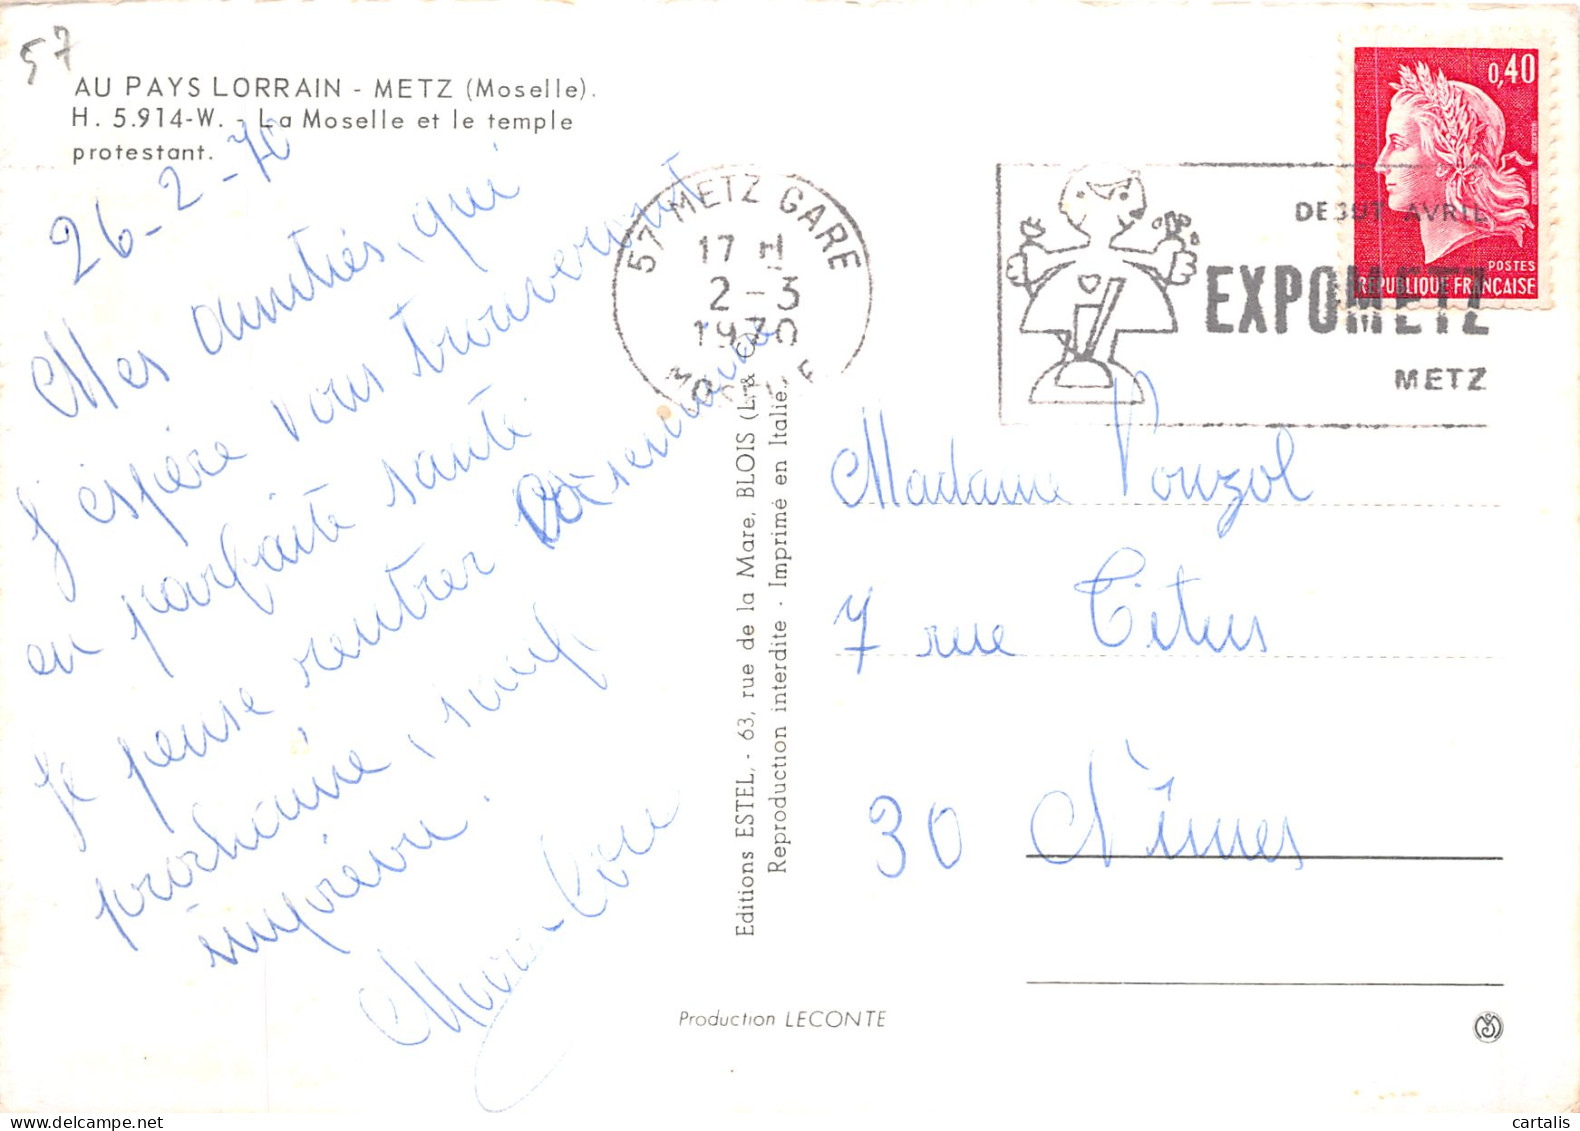 57
AU PAYS LORRAIN - METZ (Moselle).
H. 5.914-W. - La Moselle et le temple
protestant.
26-2-70
Mes amitiés, qui
j'espère vous trouveront
en parfaite santé.
Je pense rentrer la semaine
prochaine, sauf
imprévu.
57 METZ GARE
17 H
2-3
1970
MOSELLE
DEBUT AVRIL
EXPOMETZ
METZ
0,40
POSTES
REPUBLIQUE FRANÇAISE
Editions ESTEL, - 63, rue de la Mare, BLOIS (L. & C.)
Reproduction interdite - Imprimé en Italie
Madame Pouzol
7 rue Titus
30 Nîmes
Production LECONTE
cartalis